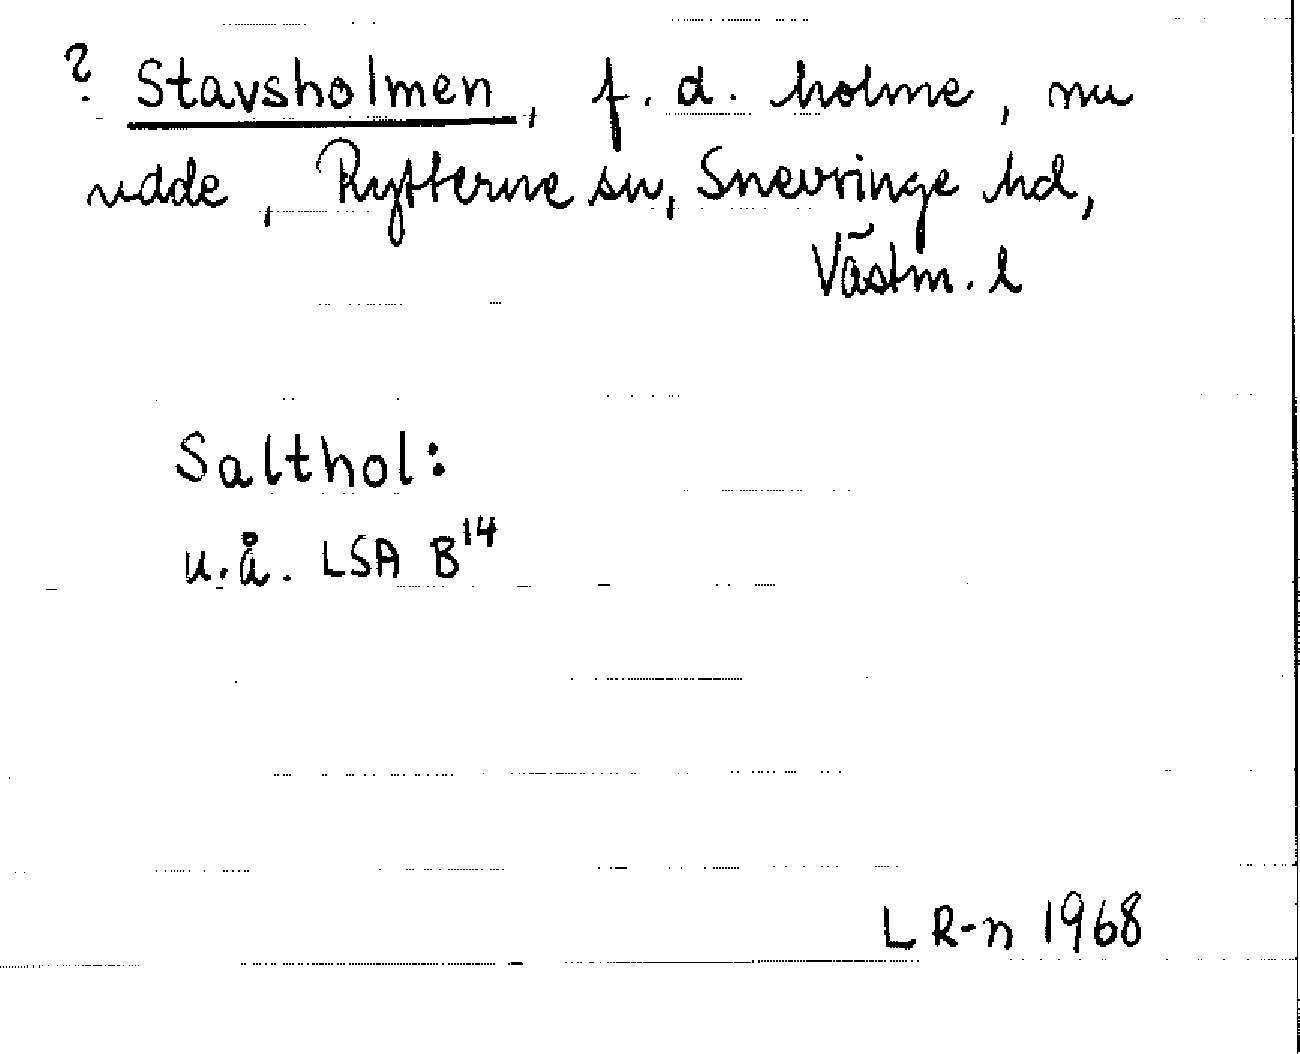 ? Stavsholmen, f. d. holme, nu
udde, Rytterne sn, Snevringe hd,
Västm. l
Salthol:
u.å. LSA B14
L R-n 1968